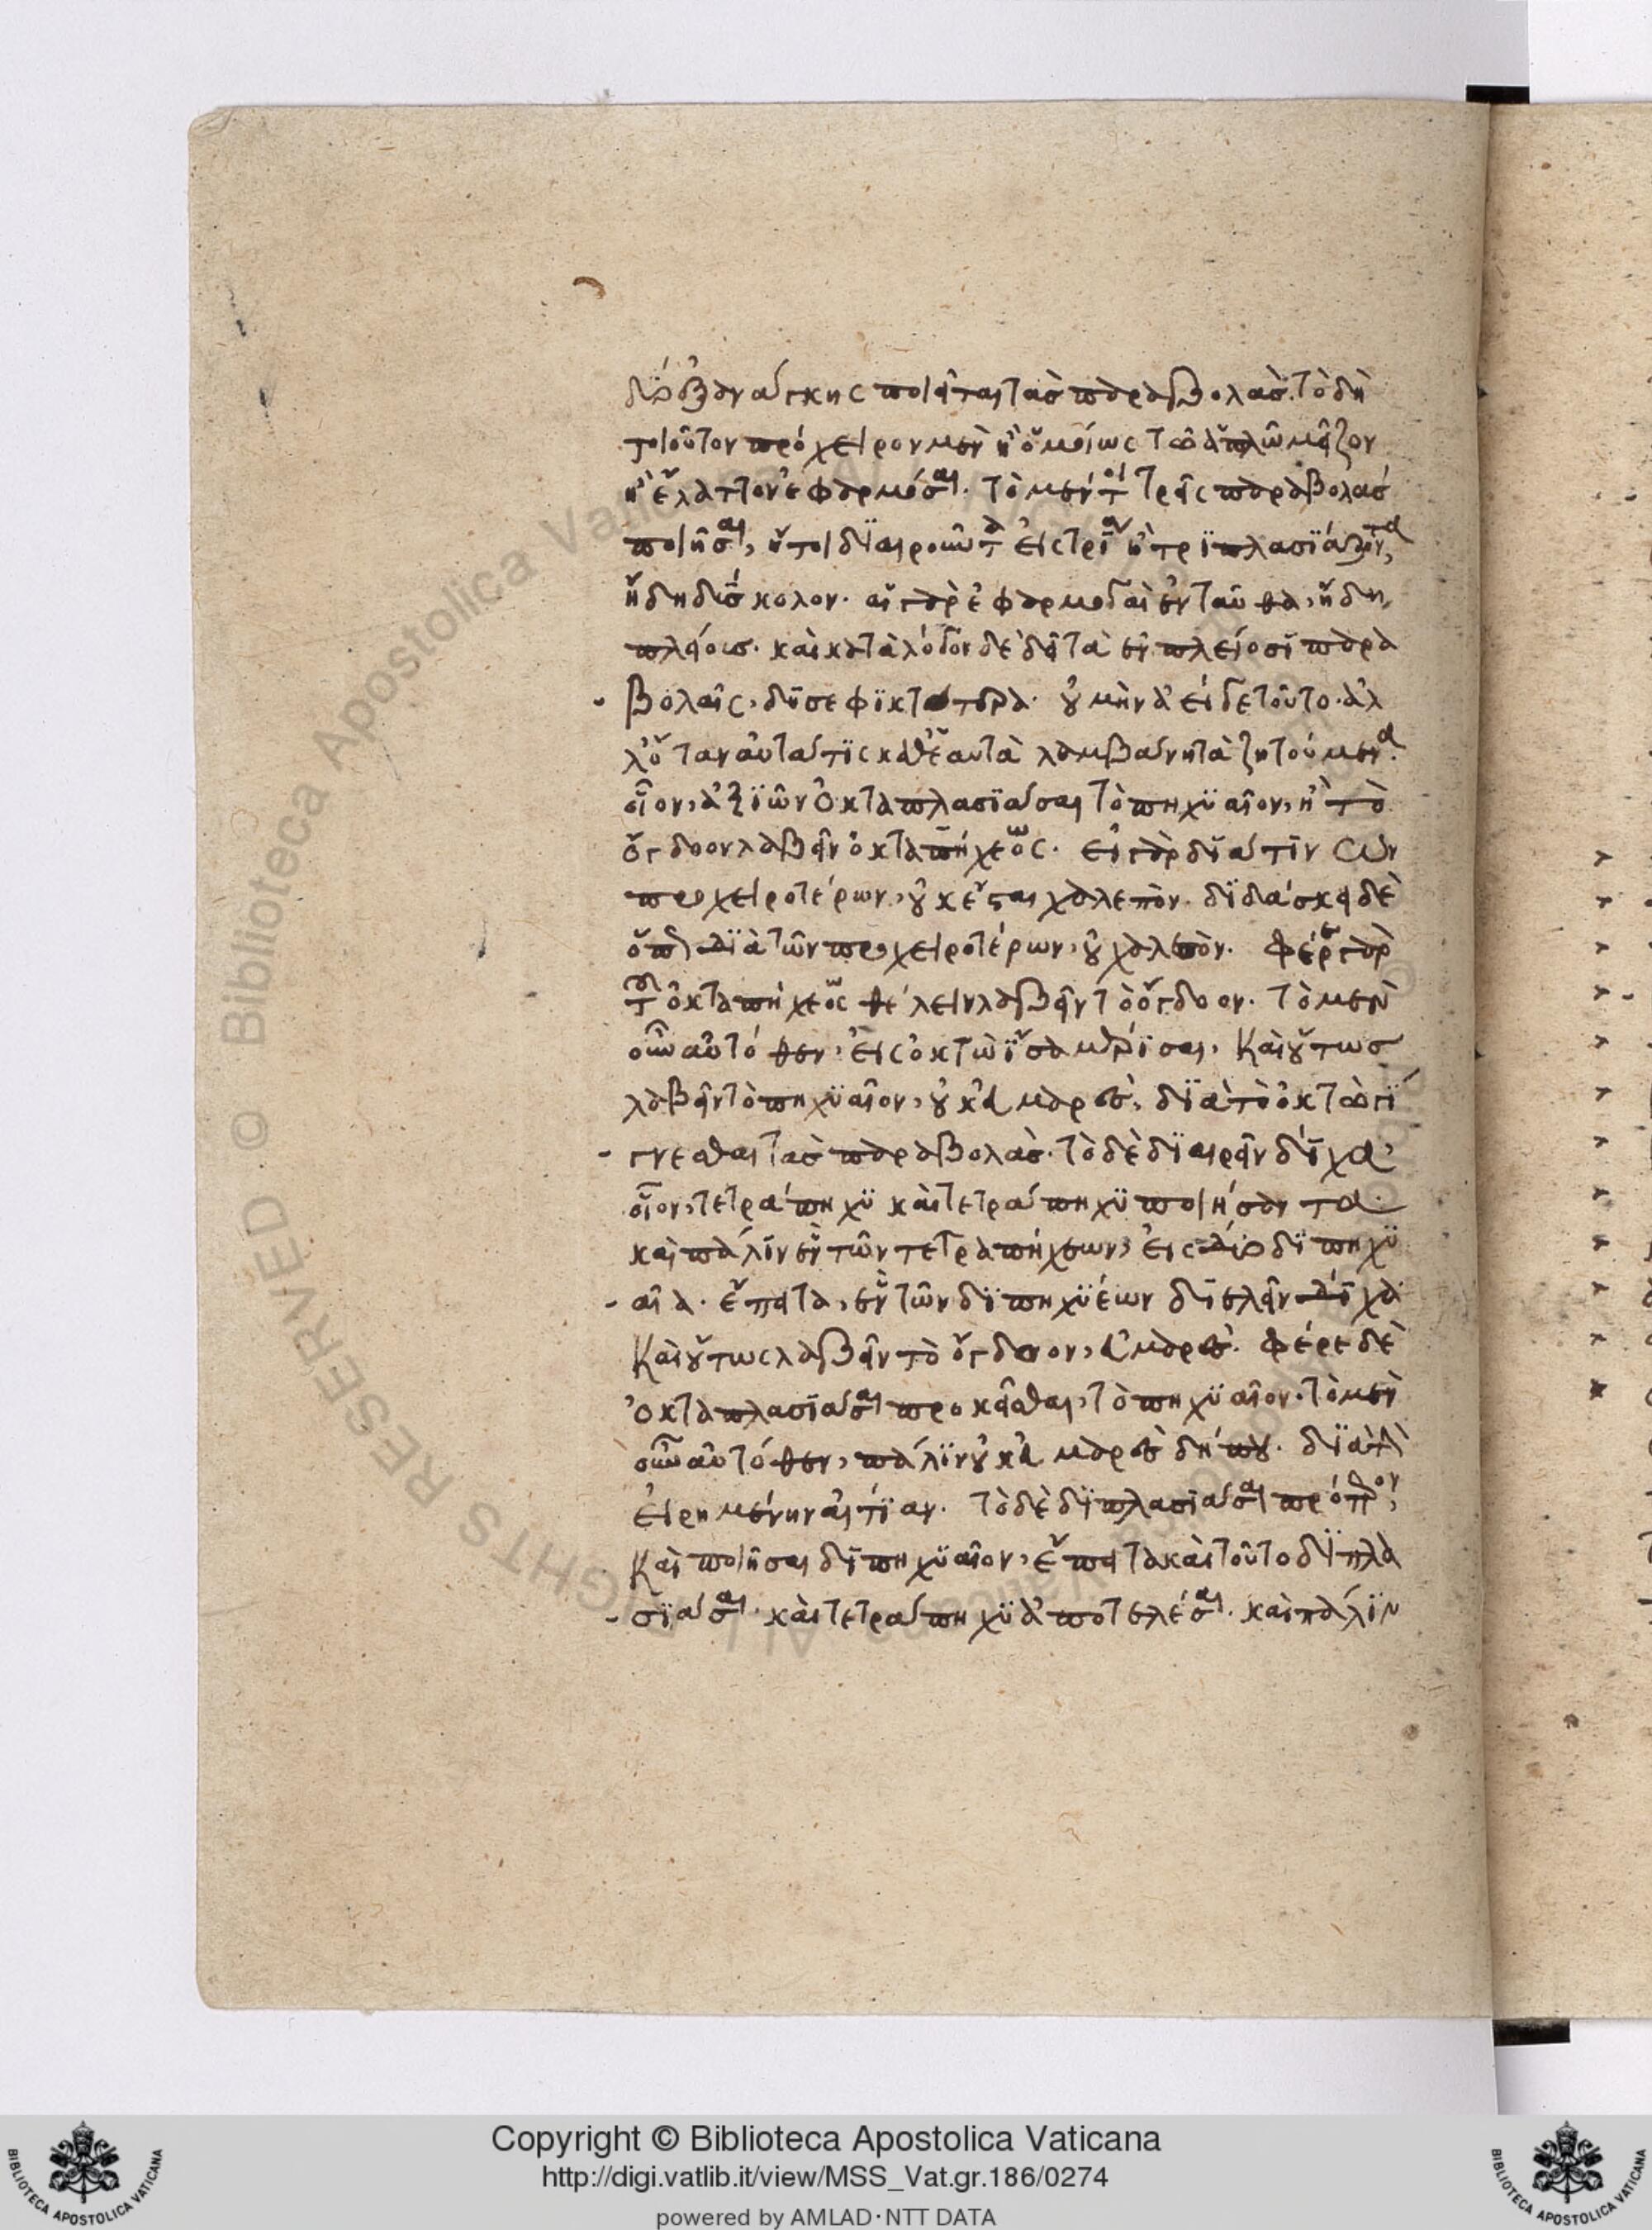 δύο ἐξ ἀνάγκης ποιεῖται τὰς παραβολάς. τὸ δὴ
τοιοῦτον πρόχειρον μὲν ἢ ὁμοίως τῷ ἁπλῶ μεῖζον
ἢ ἔλαττον ἐφαρμόσαι. τὸ μέντοι τρεῖς παραβολάς
ποιῆσαι, ἤτοι διαιροῦντα εἰς τρία ἢ τριπλασιάζοντα,
ἤδη δύσκολον. αἱ γὰρ ἐφαρμογαὶ ἐνταῦθα, ἤδη
πλείους. καὶ κατὰ λόγον δὲ δεῖ τὰ ἐν πλείοσι παρα
βολαῖς, δυσεφικτότερα. οὐ μὴν ἀεί γε τοῦτο. ἀλ
λ' ὅταν αὐτά τις καθ' ἑαυτὰ λαμβάνῃ τὰ ζητούμενα.
οἷον, ἀξιῶν ὀκταπλασιάσαι τὸ πηχυαῖον, ἢ τὸ
ὄγδοον λαβεῖν ὀκταπήχεως. εἰ γὰρ διά τινων
προχειροτέρων, οὐκ ἔσται χαλεπόν. διδάσκει δὲ
διὰ τῶν προχειροτέρων, οὐ χαλεπόν. φέρε γὰρ
τοῦ ὀκταπήχεος θέλειν λαβεῖν τὸ ὄγδοον. τὸ μὲν
οὖν αὐτόθεν, εἰς ὀκτὼ ἴσα μερίσαι, καὶ οὕτως
λαβεῖν τὸ πηχυαῖον, οὐκ εὐμαρές, διὰ τὸ ὀκτὼ γί
γνεσθαι τὰς παραβολάς. τὸ δὲ διαιρεῖν δίχα,
οἷον, τετράπηχυ καὶ τετράπηχυ ποιήσαντα.
καὶ πάλιν ἓν τῶν τετραπήχεων, εἰς δύο διπηχυ
αῖα. ἔπειτα, ἓν τῶν διπηχυέων διελεῖν δίχα
καὶ οὕτως λαβεῖν τὸ ὄγδοον, εὐμαρές. φέρε δὲ
ὀκταπλασιάσαι προκεῖσθαι, τὸ πηχυαῖον. τὸ μὲν
οὖν αὐτόθεν, πάλιν οὐκ εὐμαρὲς δήπου. διὰ τὴν
εἰρημένην αἰτίαν. τὸ δὲ διπλασιάσαι πρότερον,
καὶ ποιῆσαι διπηχυαῖον, ἔπειτα καὶ τοῦτο διπλα
σιάσαι. καὶ τετράπηχυ ἀποτελέσαι. καὶ πάλιν
Copyright © Biblioteca Apostolica Vaticana
http://digi.vatlib.it/view/MSS_Vat.gr.186/0274
powered by AMLAD·NTT DATA